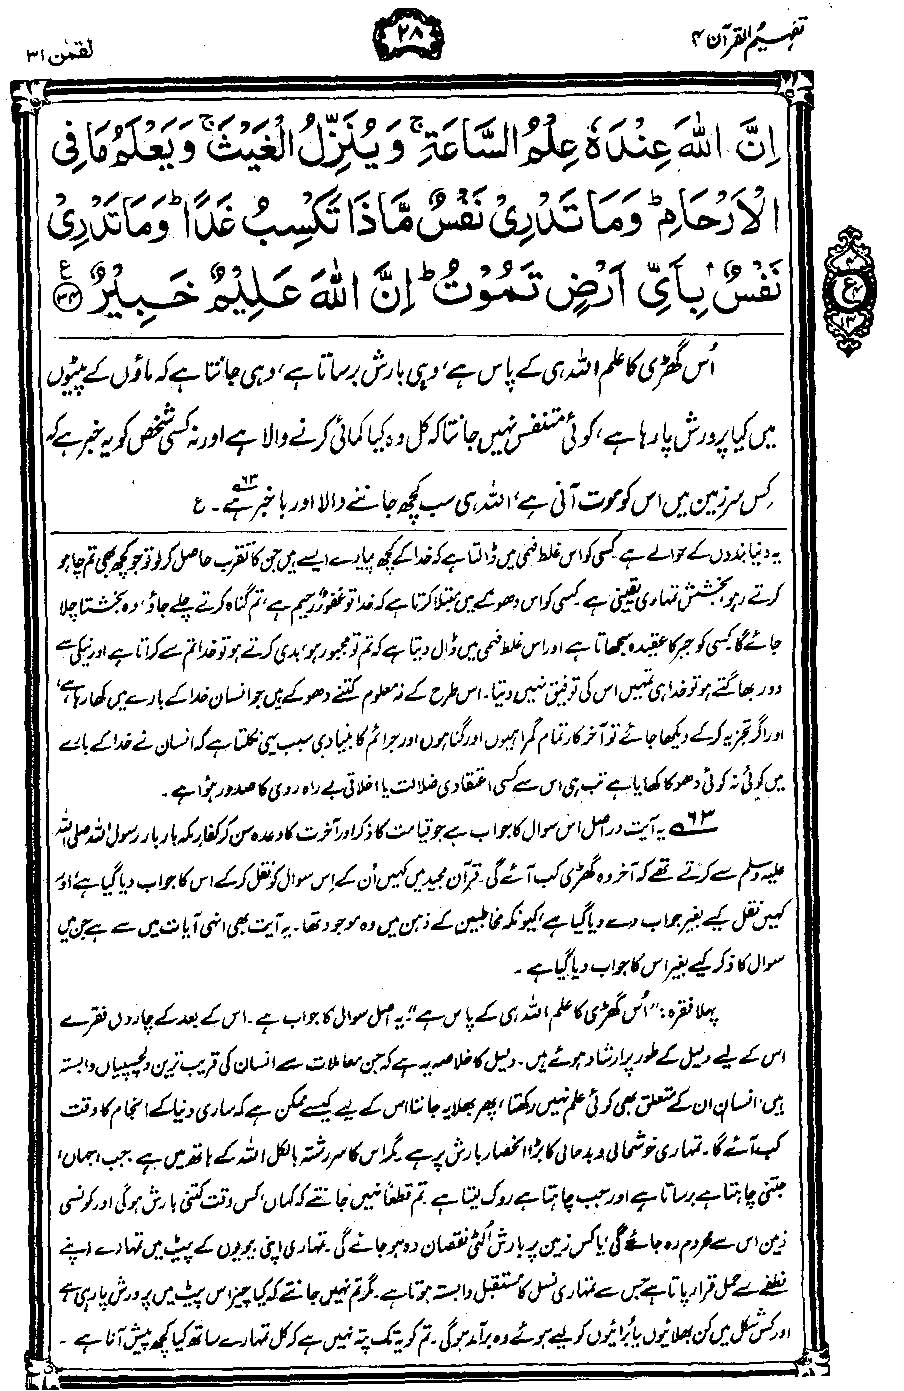 تفہیم القرآن ۴
۲۸
لقمٰن ۳۱
اِنَّ اللّٰهَ عِنْدَهٗ عِلْمُ السَّاعَةِ ۚ وَيُنَزِّلُ الْغَيْثَ ۚ وَيَعْلَمُ مَا فِي
الْاَرْحَامِ ؕ وَمَا تَدْرِيْ نَفْسٌ مَّاذَا تَكْسِبُ غَدًا ؕ وَمَا تَدْرِيْ
نَفْسٌۢ بِاَيِّ اَرْضٍ تَمُوْتُ ؕ اِنَّ اللّٰهَ عَلِيْمٌ خَبِيْرٌ ﴿۳۴﴾ ع
اُس گھڑی کا علم اللہ ہی کے پاس ہے، وہی بارش برساتا ہے، وہی جانتا ہے کہ ماؤں کے پیٹوں
میں کیا پرورش پا رہا ہے، کوئی متنفس نہیں جانتا کہ کل وہ کیا کمائی کرنے والا ہے اور نہ کسی شخص کو یہ خبر ہے کہ
کِس سرزمین میں اس کو موت آنی ہے، اللہ ہی سب کچھ جاننے والا اور باخبر ہے۶۳۔ ع
یہ دنیا بندوں کے حوالے ہے۔ کسی کو اس غلط فہمی میں ڈالتا ہے کہ خدا کے کچھ پیارے ایسے ہیں جن کا تقرب حاصل کر لو تو جو کچھ بھی تم چاہو
کرتے رہو، بخشش تمہاری یقینی ہے۔ کسی کو اس دھوکے میں مبتلا کرتا ہے کہ خدا تو غفورٌ رحیم ہے، تم گناہ کرتے چلے جاؤ، وہ بخشتا چلا
جائے گا۔ کسی کو جبر کا عقیدہ سجھاتا ہے اور اس غلط فہمی میں ڈال دیتا ہے کہ تم تو مجبور ہو، بدی کرتے ہو تو خدا تم سے کراتا ہے اور نیکی سے
دور بھاگتے ہو تو خدا ہی تمہیں اس کی توفیق نہیں دیتا۔ اس طرح کے نہ معلوم کتنے دھوکے ہیں جو انسان خدا کے بارے میں کھا رہا ہے،
اور اگر تجزیہ کر کے دیکھا جائے تو آخر کار تمام گمراہیوں اور گناہوں اور جرائم کا بنیادی سبب یہی نکلتا ہے کہ انسان نے خدا کے بارے
میں کوئی نہ کوئی دھوکا کھایا ہے تب ہی اس سے کسی اعتقادی ضلالت یا اخلاقی بے راہ روی کا صدور ہوا ہے۔
۶۳ یہ آیت دراصل اس سوال کا جواب ہے جو قیامت کا ذکر اور آخرت کا وعدہ سن کر کفار مکہ بار بار رسول اللہ صلی اللہ
علیہ وسلم سے کرتے تھے کہ آخر وہ گھڑی کب آئے گی۔ قرآن مجید میں کہیں اُن کے اِس سوال کو نقل کر کے اس کا جواب دیا گیا ہے، اور
کہیں نقل کیے بغیر جواب دے دیا گیا ہے، کیونکہ مخاطبین کے ذہن میں وہ موجود تھا۔ یہ آیت بھی انہی آیات میں سے ہے جن میں
سوال کا ذکر کیے بغیر اس کا جواب دیا گیا ہے۔
پہلا فقرہ: "اُس گھڑی کا علم اللہ ہی کے پاس ہے"، یہ اصل سوال کا جواب ہے۔ اس کے بعد کے چاروں فقرے
اس کے لیے دلیل کے طور پر ارشاد ہوئے ہیں۔ دلیل کا خلاصہ یہ ہے کہ جن معاملات سے انسان کی قریب ترین دلچسپیاں وابستہ
ہیں، انسان ان کے متعلق بھی کوئی علم نہیں رکھتا، پھر بھلا یہ جاننا اس کے لیے کیسے ممکن ہے کہ ساری دنیا کے انجام کا وقت
کب آئے گا۔ تمہاری خوشحالی و بدحالی کا بڑا انحصار بارش پر ہے۔ مگر اس کا سررشتہ بالکل اللہ کے ہاتھ میں ہے۔ جب، جہاں،
جتنی چاہتا ہے برساتا ہے اور جب چاہتا ہے روک لیتا ہے۔ تم قطعاً نہیں جانتے کہ کہاں، کس وقت کتنی بارش ہوگی اور کونسی
زمین اس سے محروم رہ جائے گی، یا کس زمین پر بارش الٹی نقصان دہ ہو جائے گی۔ تمہاری اپنی بیویوں کے پیٹ میں تمہارے اپنے
نطفے سے حمل قرار پاتا ہے جس سے تمہاری نسل کا مستقبل وابستہ ہوتا ہے۔ مگر تم نہیں جانتے کہ کیا چیز اس پیٹ میں پرورش پا رہی ہے
اور کس شکل میں کن بھلائیوں یا برائیوں کو لیے ہوئے وہ برآمد ہوگی۔ تم کو یہ تک پتہ نہیں ہے کہ کل تمہارے ساتھ کیا کچھ پیش آنا ہے۔